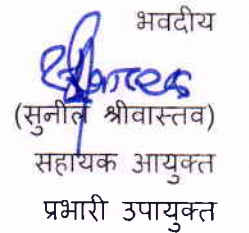 भवदीय
(सुनील श्रीवास्तव)
सहायक आयुक्त
प्रभारी उपायुक्त